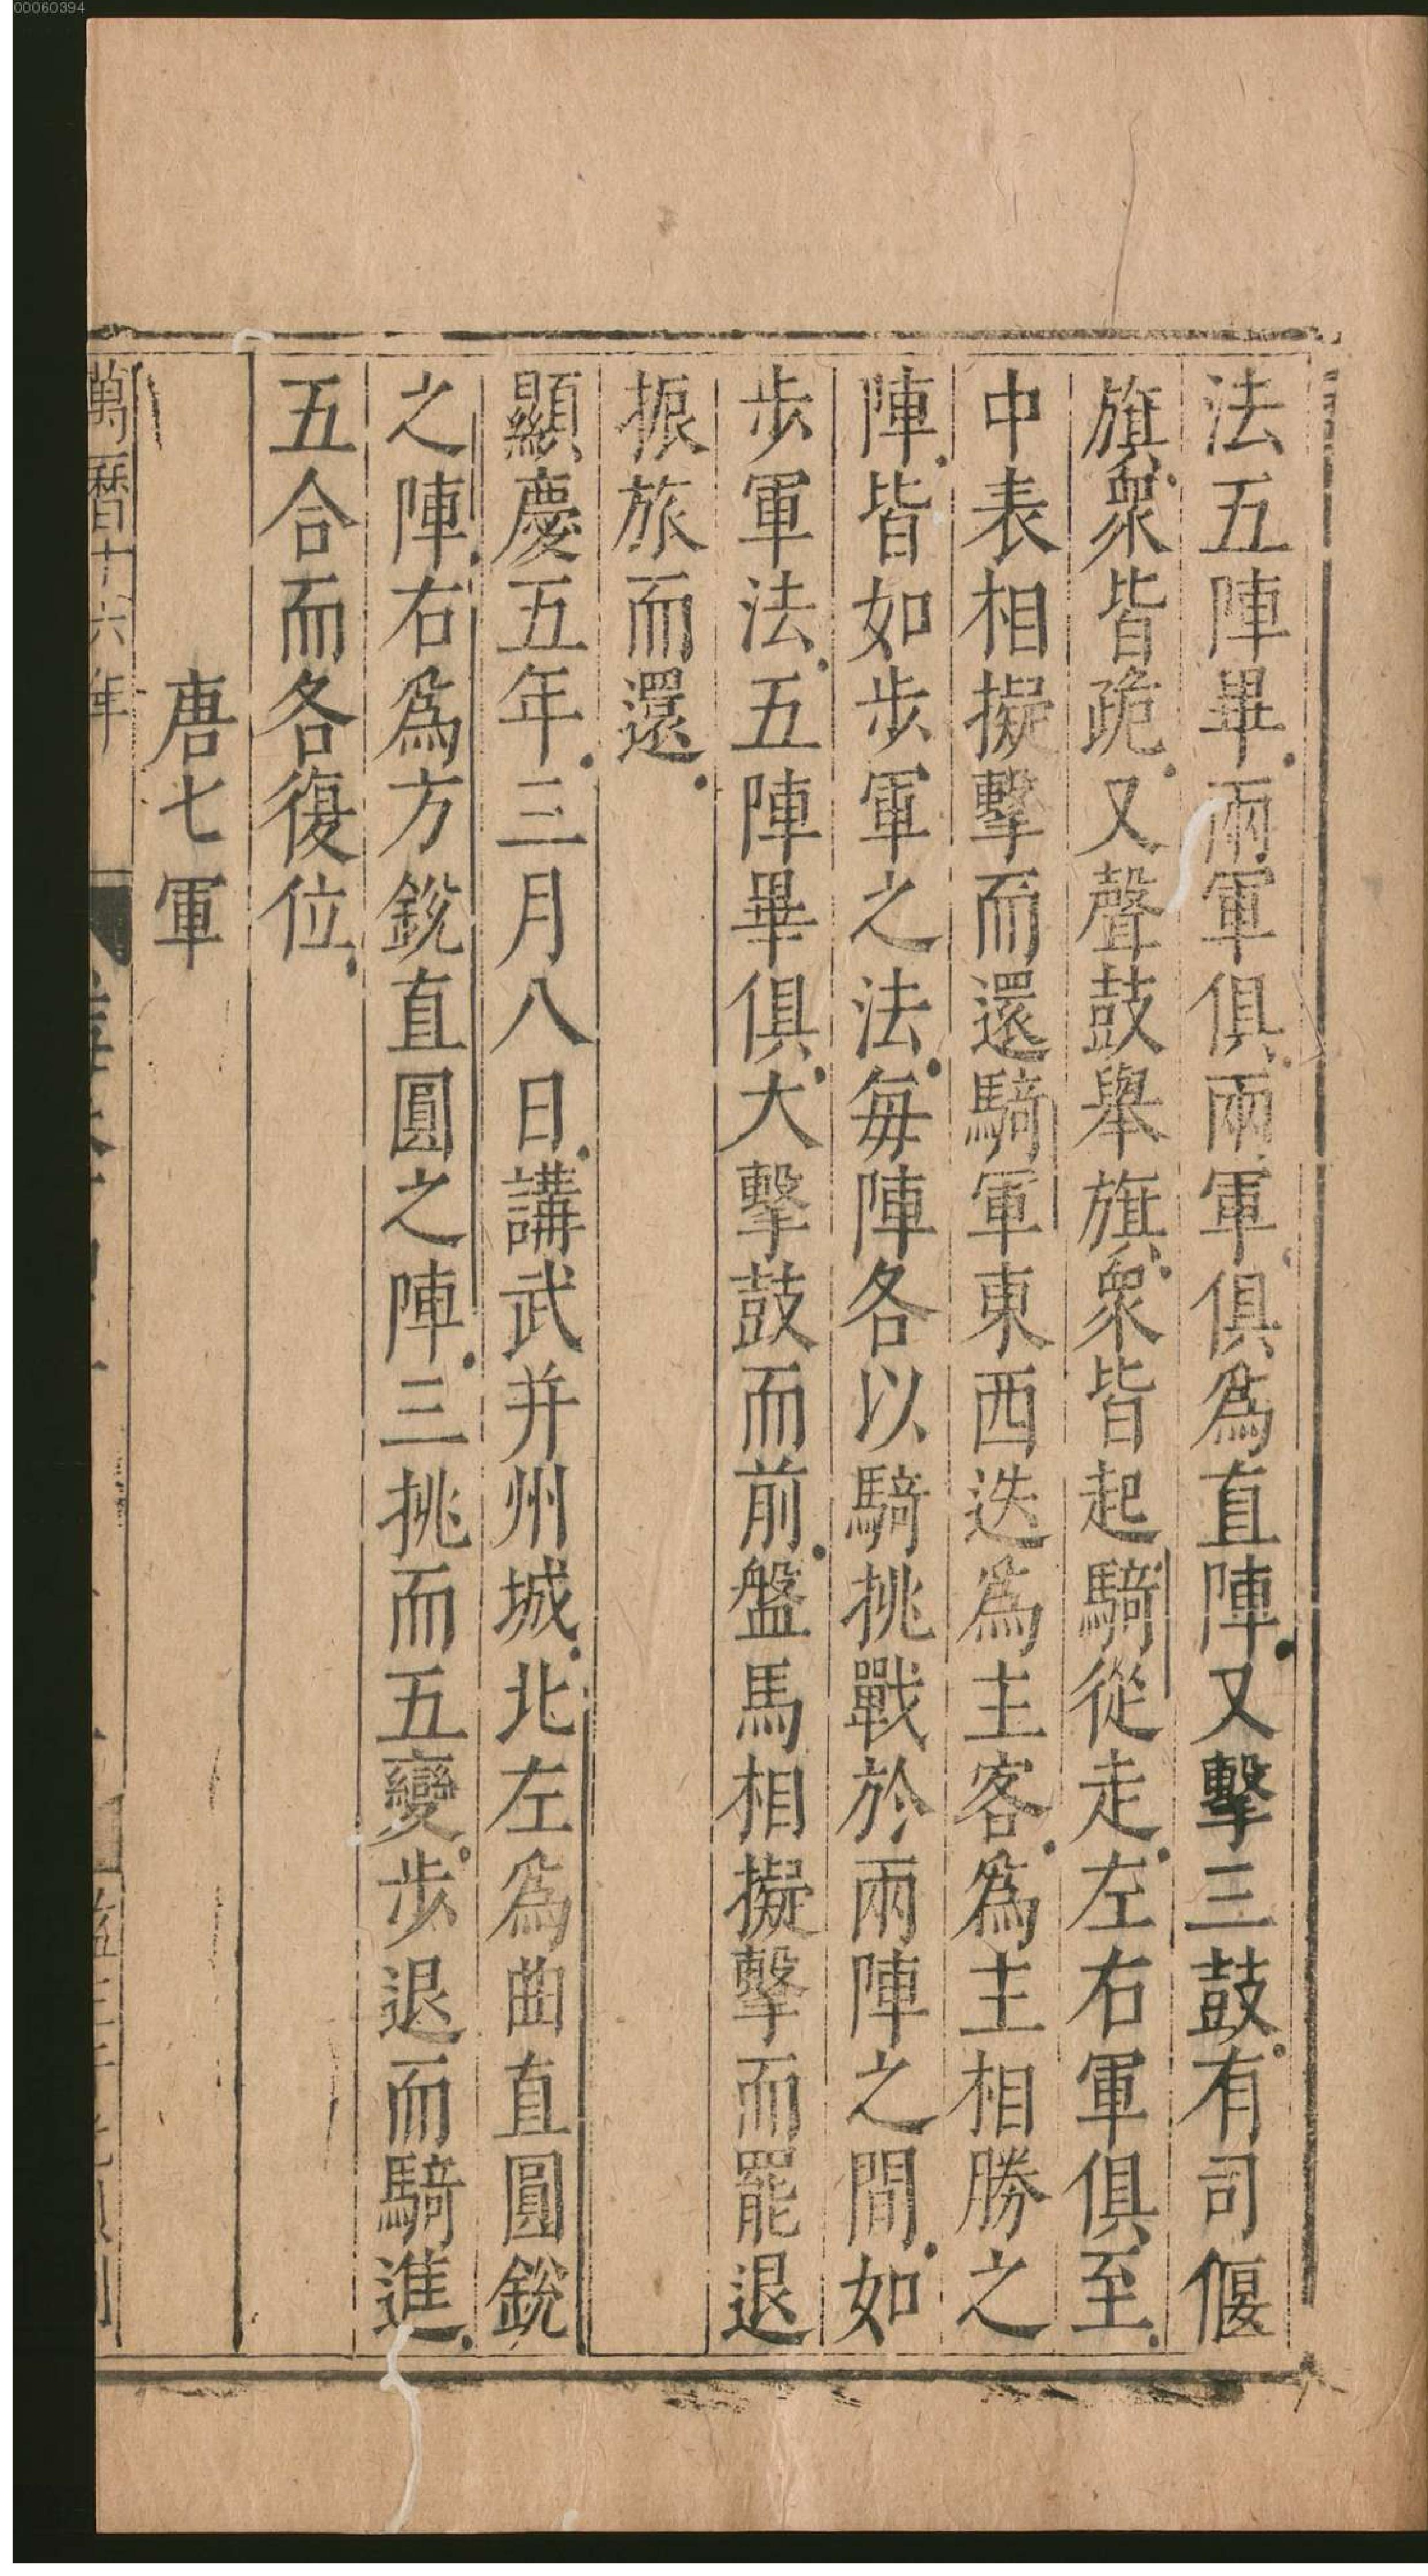 法五陣畢兩軍俱兩軍俱爲直陣又擊三鼓有司偃
旗衆皆跪又聲鼓舉旗衆皆起騎從走左右軍俱至
中表相擬擊而還騎軍東西迭爲主客爲主相勝之
陣皆如步軍之法每陣各以騎挑戰於兩陣之間如
步軍法五陣畢俱大擊鼓而前盤馬相擬擊而罷退
振旅而還
顯慶五年三月八日講武并州城北左爲曲直圓銳
之陣右爲方銳直圓之陣三挑而五變步退而騎進
五合而各復位
唐七軍
萬曆十六年
00060394